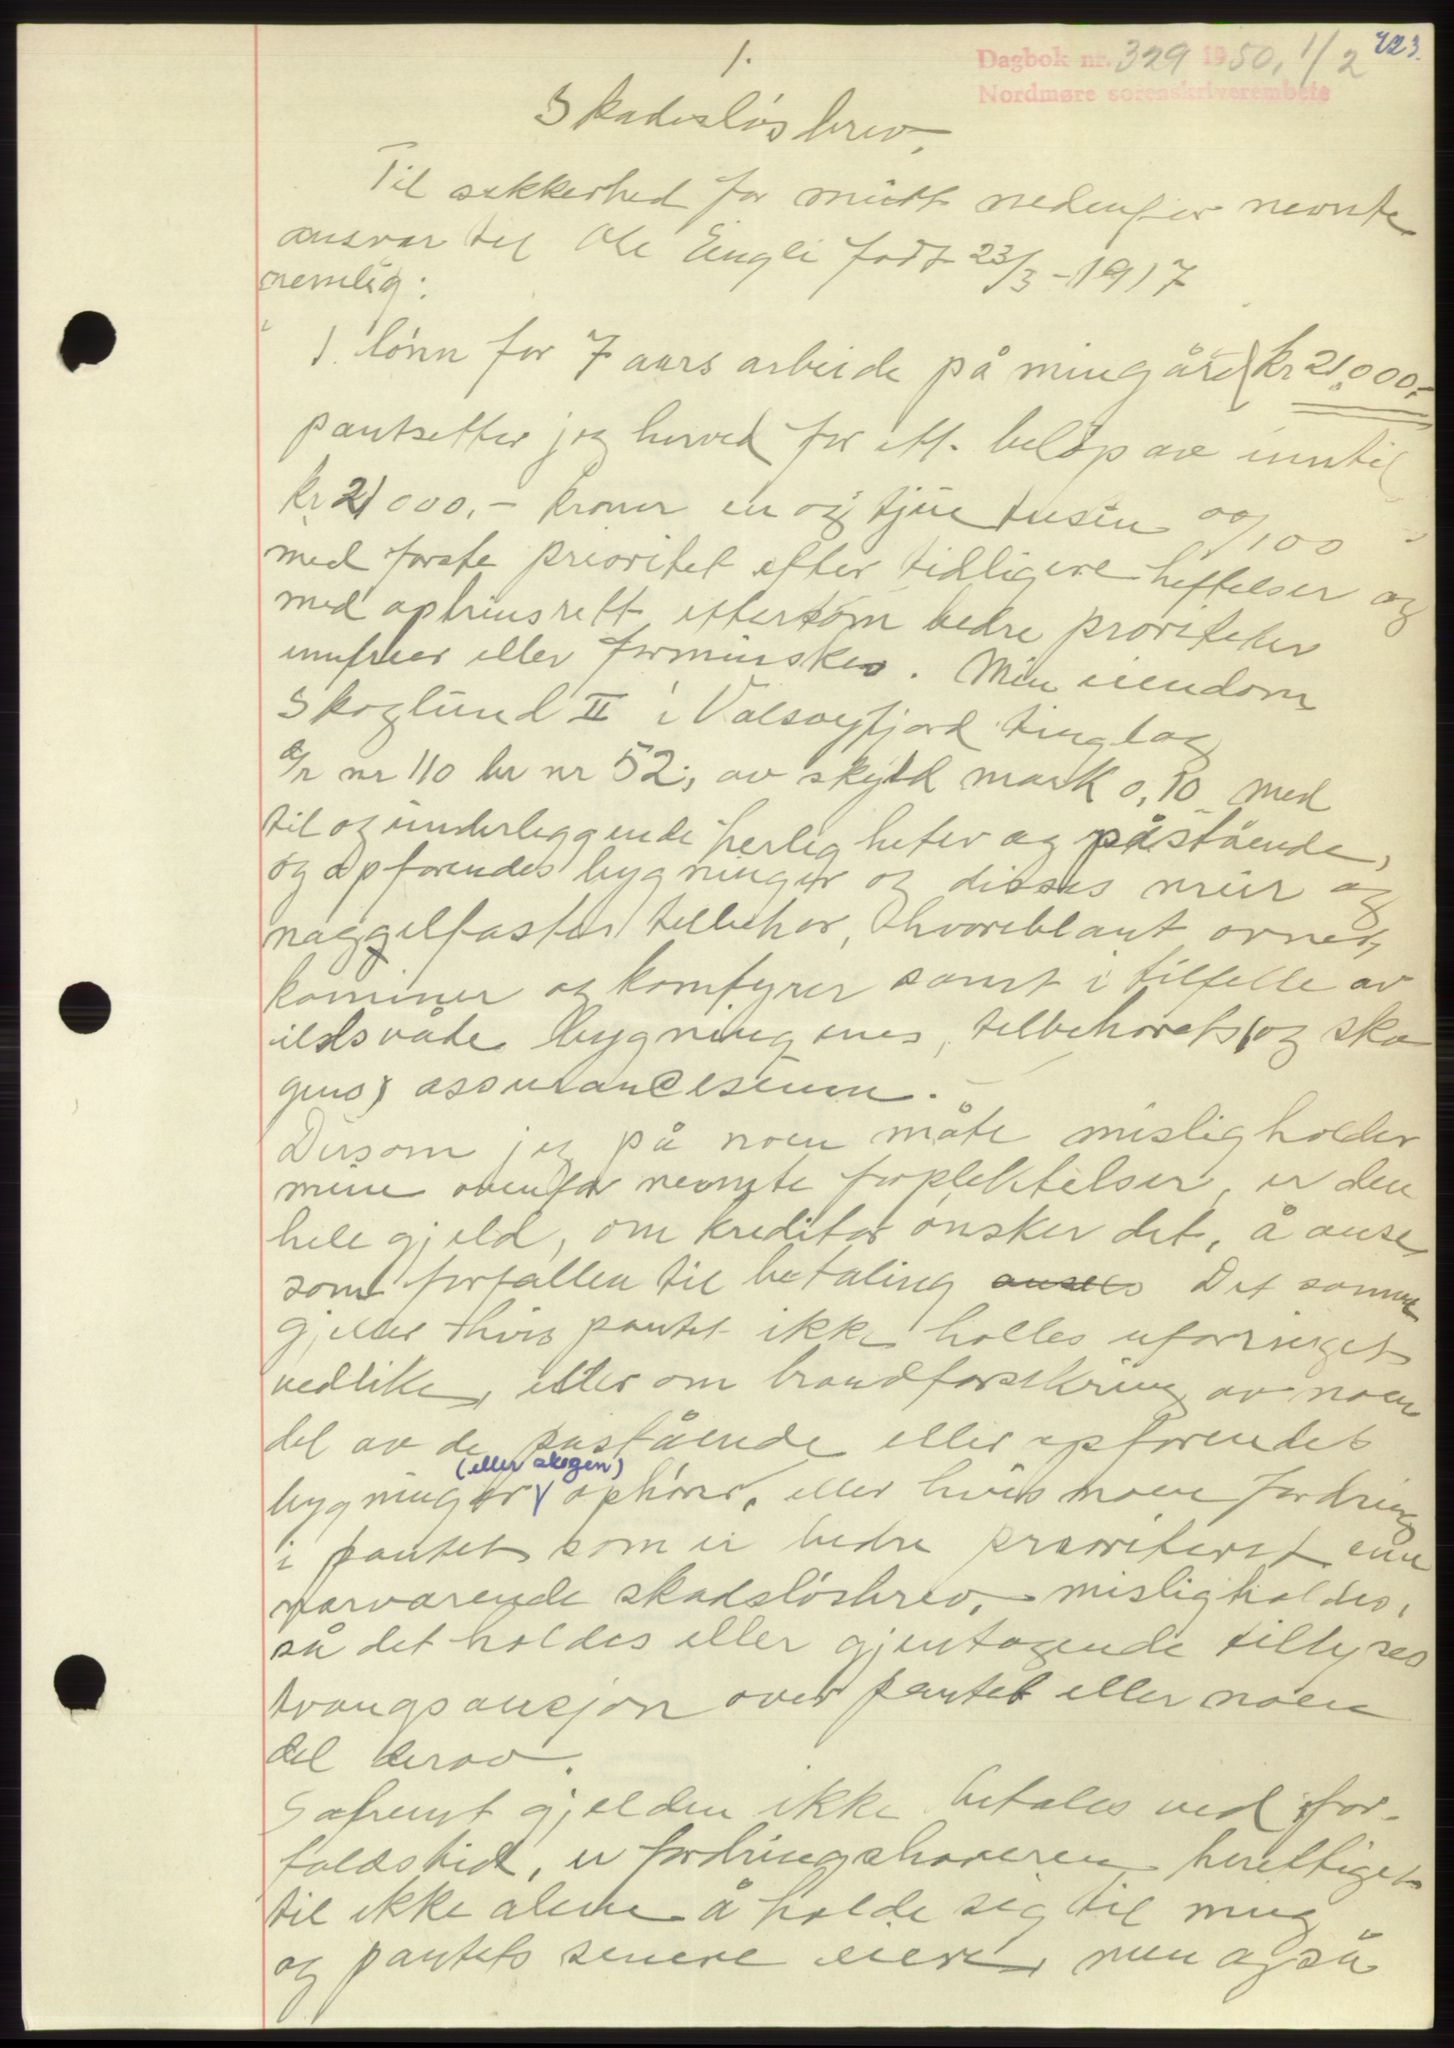 1.
Dagbok nr. 329 1950, 1/2 423.
Nordmøre sorenskriverembete
Skadesløsbrev.
Til sikkerhed for mitt nedenfor nevnte
ansvar til Ole Engli født 23/3-1917
nemlig:
1. lønn for 7 aars arbeide på min gård kr 21.000,-
pantsetter jeg herved for ett beløp av inntil
kr 21000.- kroner en og tjue tusen 00/100
med første prioritet efter tidligere heftelser og
med optrinsrett ettersom bedre prioriteter
innfries eller forminskes. Min eiendom
Skoglund II i Valsøyfjord tinglag
g/r nr 110 br nr 52, av skyld mark 0,10 med
til og underleggende herligheter og påstående,
og opførendes bygninger og disses mur og
naggelfaster tilbehør, hvoriblant ovner,
kominer og komfyrer samt i tilfelle av
ildsvåde bygningenes, tilbehørets (og sko
gens) assurancesum.
Dersom jeg på noen måte misligholder
mine ovenfor nevnte forpliktelser, er den
hele gjeld, om kreditor ønsker det, å anse
som forfallen til betaling ansees Det samme
gjelder hvis pantet ikke holles uforringet
vedlike, eller om brandforsikring av noen
del av de påstående eller opførendes
(eller skogen)
bygninger ophører, eller hvis noen fordring
i pantet som er bedre prioritert enn
nærværende skadsløsbrev, misligholdes,
så det holdes eller gjentagende tillyses
tvangsauksjon over pantet eller noen
del derav.
Såfremt gjelden ikke betales ved for-
faldstid, er fordringshaveren berettiget
til ikke alene å holde sig til mig
og pantets senere eiere, men også